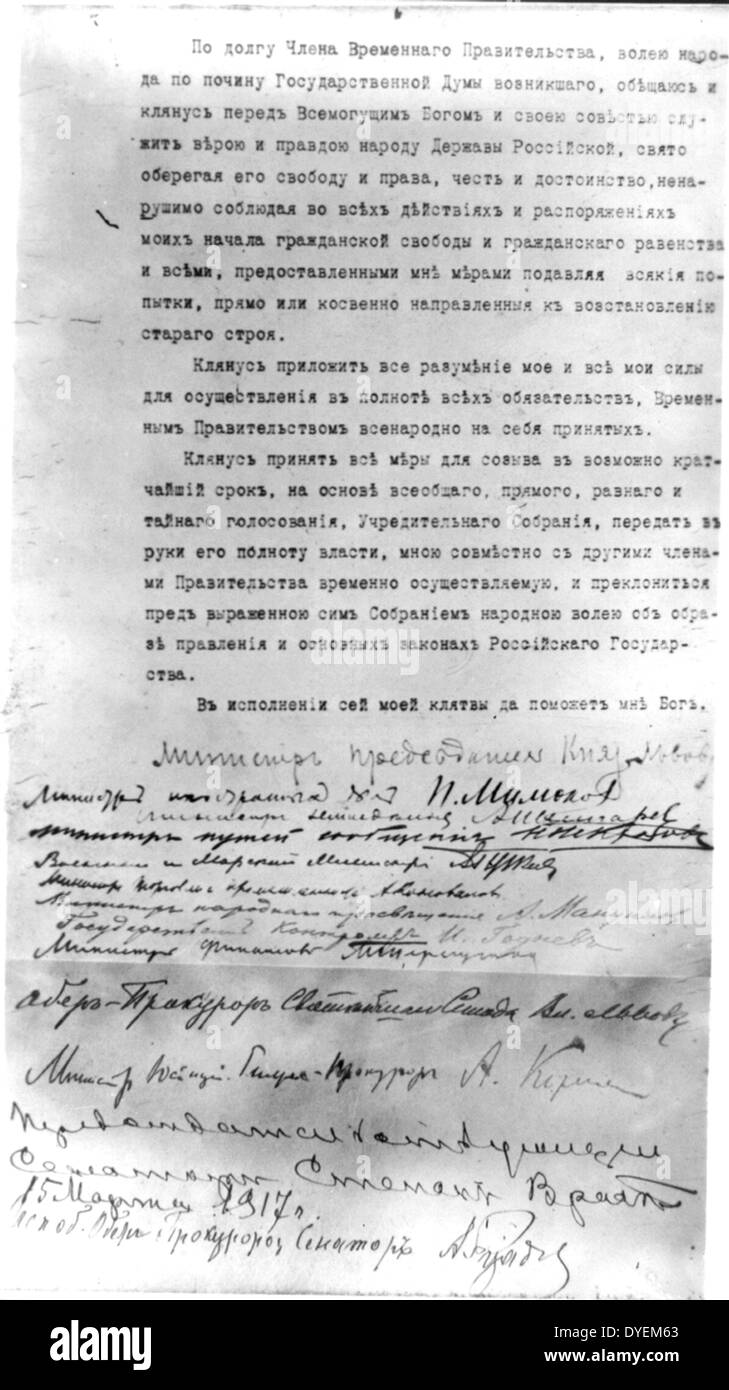 По долгу Члена Временнаго Правительства, волею наро-
да по почину Государственной Думы возникшаго, обѣщаюсь и
клянусь передъ Всемогущимъ Богомъ и своею совѣстью слу-
жить вѣрою и правдою народу Державы Россійской, свято
оберегая его свободу и права, честь и достоинство, нена-
рушимо соблюдая во всѣхъ дѣйствіяхъ и распоряженіяхъ
моихъ начала гражданской свободы и гражданскаго равенства
и всѣми, предоставленными мнѣ мѣрами подавляя всякія по-
пытки, прямо или косвенно направленныя къ возстановленію
стараго строя.
Клянусь приложить все разумѣніе мое и всѣ мои силы
для осуществленія въ полнотѣ всѣхъ обязательствъ, Времен-
нымъ Правительствомъ всенародно на себя принятыхъ.
Клянусь принять всѣ мѣры для созыва въ возможно крат-
чайшій срокъ, на основѣ всеобщаго, прямого, равнаго и
тайнаго голосованія, Учредительнаго Собранія, передать въ
руки его полноту власти, мною совмѣстно съ другими члена-
ми Правительства временно осуществляемую, и преклониться
предъ выраженною симъ Собраніемъ народною волею объ обра-
зѣ правленія и основныхъ законахъ Россійскаго Государ-
ства.
Въ исполненіи сей моей клятвы да поможетъ мнѣ Богъ.
Министръ председатель Княз. Львовъ
Министръ иностранныхъ дѣл П. Милюков
министръ земледелия А Шингарев
министръ путей сообщенія Н Некрасовъ
Военный и Морской Министръ А Гучков
Министр торговли и промышленности А Коновалов
Министръ народнаго просвещения А. Мануилов
Государственный Контролеръ И. Годневъ
Министръ финансовъ М Терещенко
Обер-Прокурор Святейшаго Синода Вл. Львовъ
Министр Юстиции Генерал-Прокурор А. Керен
Сенаторъ Степанъ Врас
15 Марта 1917 г.
Обер Прокурора Сенаторъ
alamy
Image ID: DYEM63
www.alamy.com